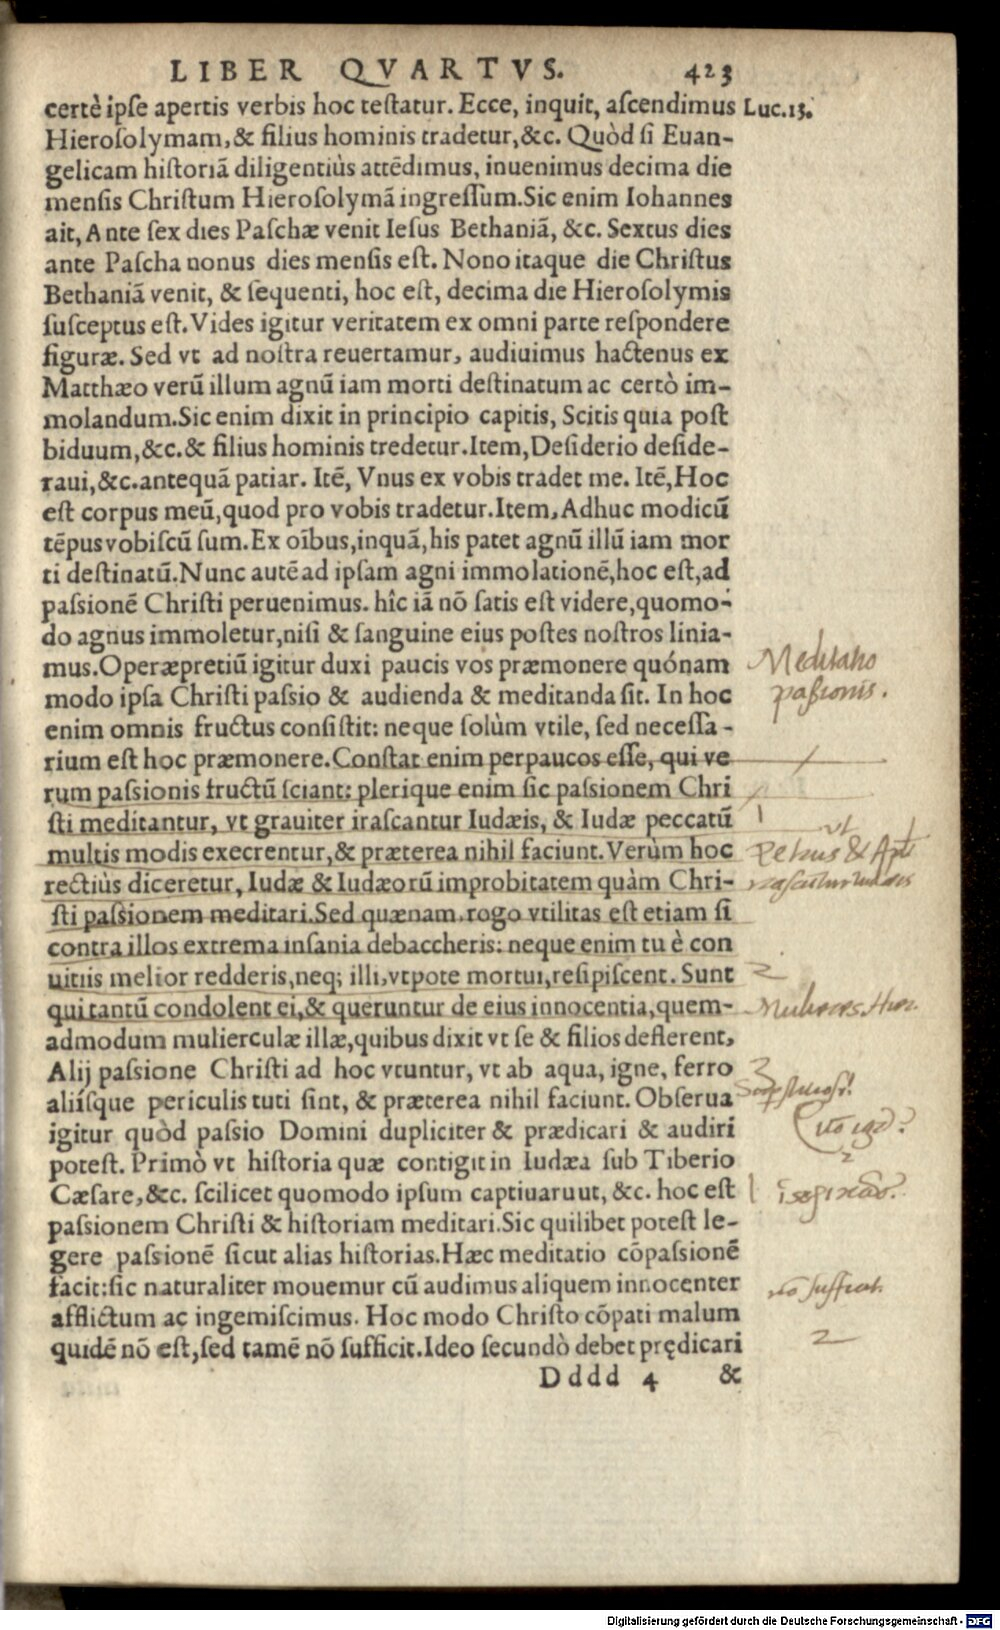 LIBER QVARTVS. 423
certè ipse apertis verbis hoc testatur. Ecce, inquit, ascendimus Luc.13.
Hierosolymam, & filius hominis tradetur, &c. Quòd si Euan-
gelicam historiã diligentiùs attẽdimus, inuenimus decima die
mensis Christum Hierosolymã ingressum. Sic enim Iohannes
ait, Ante sex dies Paschæ venit Iesus Bethaniã, &c. Sextus dies
ante Pascha nonus dies mensis est. Nono itaque die Christus
Bethaniã venit, & sequenti, hoc est, decima die Hierosolymis
susceptus est. Vides igitur veritatem ex omni parte respondere
figuræ. Sed vt ad nostra reuertamur, audiuimus hactenus ex
Matthæo verũ illum agnũ iam morti destinatum ac certò im-
molandum. Sic enim dixit in principio capitis, Scitis quia post
biduum, &c. & filius hominis tredetur. Item, Desiderio deside-
raui, &c. antequã patiar. Itẽ, Vnus ex vobis tradet me. Itẽ, Hoc
est corpus meũ, quod pro vobis tradetur. Item, Adhuc modicũ
tẽpus vobiscũ sum. Ex oĩbus, inquã, his patet agnũ illũ iam mor
ti destinatũ. Nunc autẽ ad ipsam agni immolationẽ, hoc est, ad
passionẽ Christi peruenimus. hîc iã nõ satis est videre, quomo-
do agnus immoletur, nisi & sanguine eius postes nostros linia-
mus. Operæpretiũ igitur duxi paucis vos præmonere quónam
modo ipsa Christi passio & audienda & meditanda sit. In hoc
enim omnis fructus consistit: neque solùm vtile, sed necessa-
rium est hoc præmonere. Constat enim perpaucos esse, qui ve
rum passionis fructũ sciant: plerique enim sic passionem Chri
sti meditantur, vt grauiter irascantur Iudæis, & Iudæ peccatũ
multis modis execrentur, & præterea nihil faciunt. Verùm hoc
rectiùs diceretur, Iudæ & Iudæorũ improbitatem quàm Chri-
sti passionem meditari. Sed quænam, rogo vtilitas est etiam si
contra illos extrema insania debaccheris: neque enim tu è con
uitiis melior redderis, neq; illi, vtpote mortui, resipiscent. Sunt
qui tantũ condolent ei, & queruntur de eius innocentia, quem-
admodum mulierculæ illæ, quibus dixit vt se & filios deflerent,
Alij passione Christi ad hoc vtuntur, vt ab aqua, igne, ferro
aliísque periculis tuti sint, & præterea nihil faciunt. Obserua
igitur quòd passio Domini dupliciter & prædicari & audiri
potest. Primò vt historia quæ contigit in Iudæa sub Tiberio
Cæsare, &c. scilicet quomodo ipsum captiuaruut, &c. hoc est
passionem Christi & historiam meditari. Sic quilibet potest le-
gere passionẽ sicut alias historias. Hæc meditatio cõpassionẽ
facit: sic naturaliter mouemur cũ audimus aliquem innocenter
afflictum ac ingemiscimus. Hoc modo Christo cõpati malum
quidẽ nõ est, sed tamẽ nõ sufficit. Ideo secundò debet prędicari
Dddd 4 &
Meditatio
passionis.
1
vt
Petrus &
2
Mulieres
3
1
nõ
2
Digitalisierung gefördert durch die Deutsche Forschungsgemeinschaft - DFG